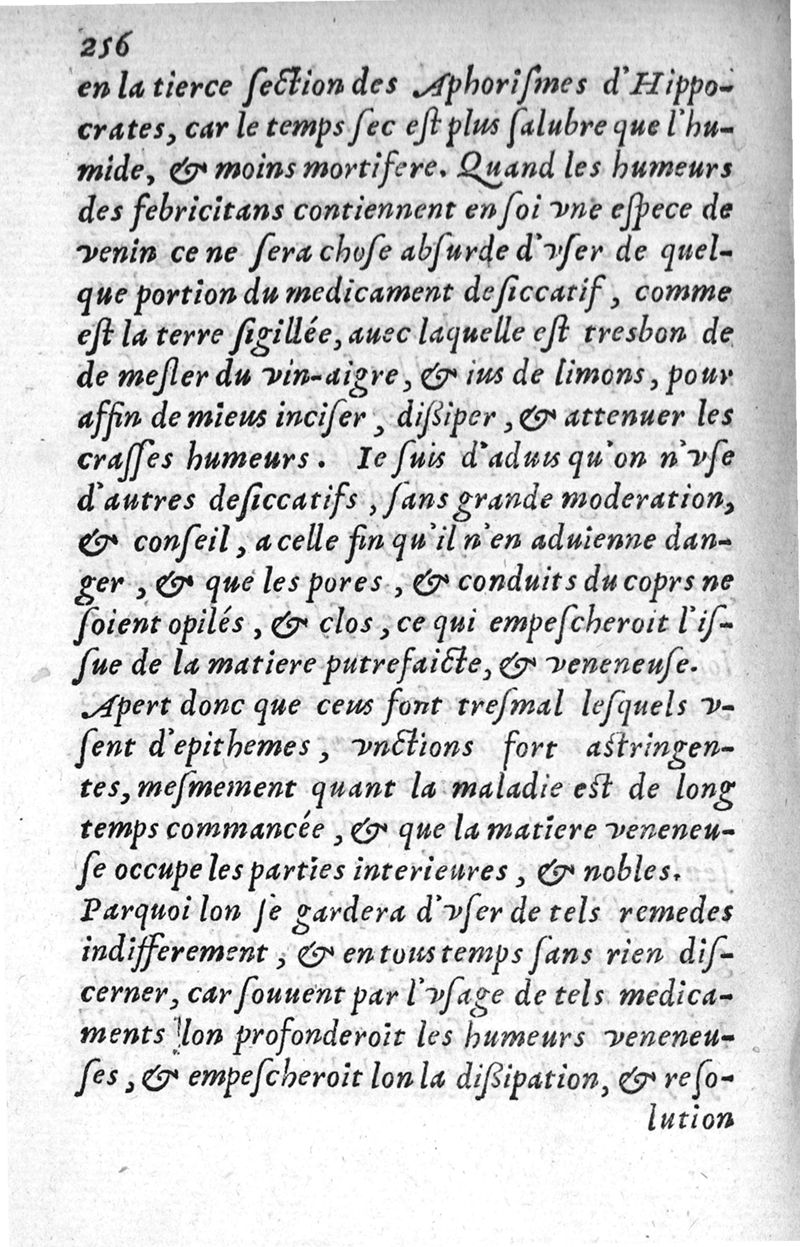 256
en la tierce ſection des Aphoriſmes d'Hippo-
crates, car le temps ſec eſt plus ſalubre que l'hu-
mide, & moins mortifere. Quand les humeurs
des febricitans contiennent en ſoi vne eſpece de
venin ce ne ſera choſe abſurde d'vſer de quel-
que portion du medicament deſiccatif, comme
eſt la terre ſigillée, auec laquelle eſt tresbon de
de meſler du vin-aigre, & ius de limons, pour
affin de mieus inciſer, dißiper, & attenuer les
craſſes humeurs. Ie ſuis d'aduis qu'on n'vſe
d'autres deſiccatifs, ſans grande moderation,
& conſeil, a celle fin qu'il n'en aduienne dan-
ger, & que les pores, & conduits du coprs ne
ſoient opilés, & clos, ce qui empeſcheroit l'iſ-
ſue de la matiere putrefaicte, & veneneuſe.
Apert donc que ceus font treſmal leſquels v-
ſent d'epithemes, vnctions fort aſtringen-
tes, meſmement quant la maladie eſt de long
temps commancée, & que la matiere veneneu-
ſe occupe les parties interieures, & nobles.
Parquoi lon ſe gardera d'vſer de tels remedes
indifferement, & en tous temps ſans rien diſ-
cerner, car ſouuent par l'vſage de tels medica-
ments lon profonderoit les humeurs veneneu-
ſes, & empeſcheroit lon la dißipation, & reſo-
lution